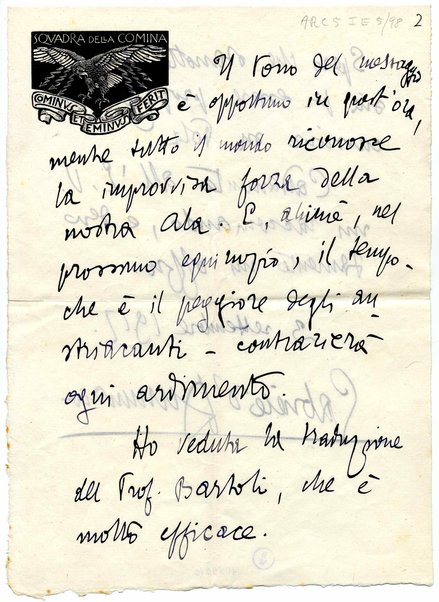 ARC 5 I E 5/98 2
SQVADRA DELLA COMINA
COMINVS ET EMINVS FERIT
Il tono del messaggio
è opportuno in quest'ora,
mentre tutto il mondo riconosce
la improvvisa forza della
nostra Ala. E ahimè, nel
prossimo equinozio, il tempo -
che è il peggiore degli au
striacanti - contrarierà
ogni ardimento.
Ho veduta la traduzione
del Prof. Bartoli, che è
molto efficace.